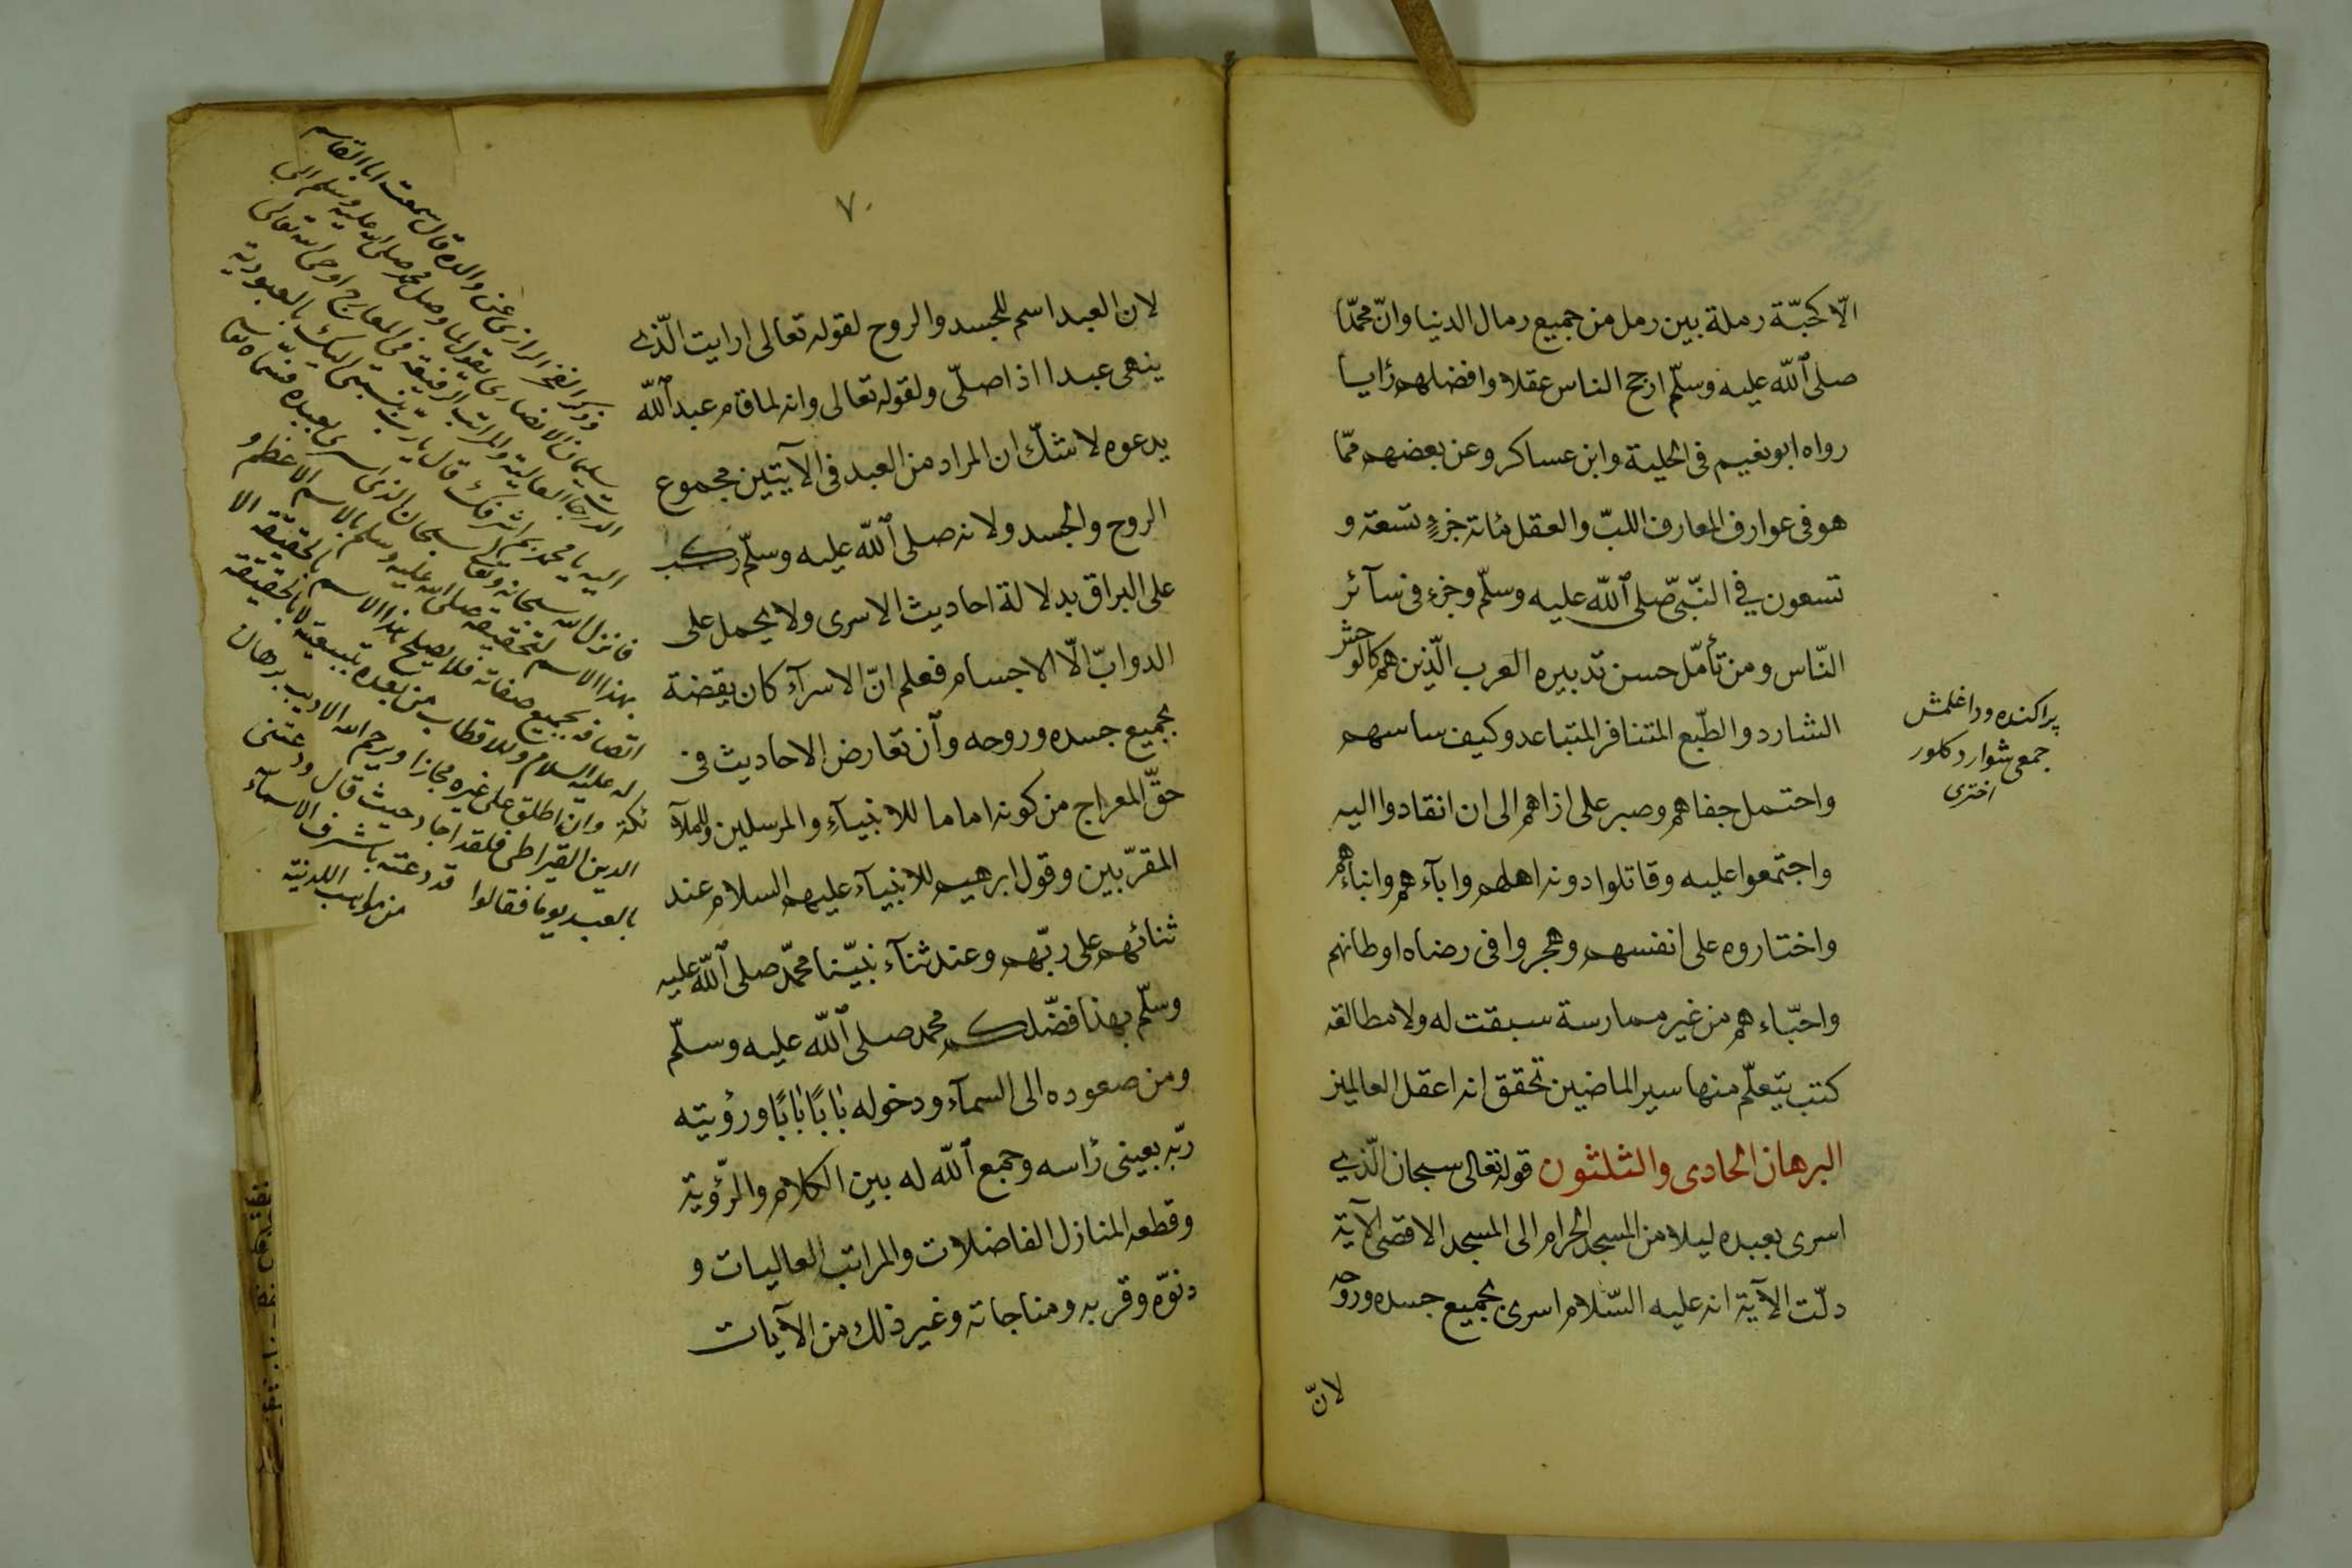 الّا كحبّة رملة بين رمل من جميع رمال الدنيا وانّ محمّدا
صلى الله عليه وسلّم ارجح الناس عقلا وافضلهم رأيا
رواه ابو نعيم فى الحلية وابن عساكر وعن بعضهم ممّا
هو فى عوارف المعارف اللبّ والعقل مائة جزء تسعة و
تسعون في النّبىّ صلى الله عليه وسلّم وجزء فى سآئر
النّاس ومن تأمّل حسن تدبيره العرب الّذين هم كالوحش
الشارد والطّبع المتنافر المتباعد وكيف ساسهم
واحتمل جفاهم وصبر على اذاهم الى ان انقادوا اليه
واجتمعوا عليه وقاتلوا دونه اهلهم وابآءهم وابناءهم
واختاروه على انفسهم وهجروا فى رضاه اوطانهم
واحبّاءهم من غير ممارسة سبقت له ولا مطالقه
كتب يتعلّم منها سير الماضين تحقق انه اعقل العالمين
البرهان الحادى والثلثون قوله تعالى سبحان الّذي
اسرى بعبده ليلا من المسجد الحرام الى المسجد الاقصى الآية
دلّت الآية انه عليه السّلام اسرى بجميع جسده وروحه
لانّ
پراكنده وداغلمش
جمعى شوارد كلور
اخترى
٧٠
لان العبد اسم للجسد والروح لقوله تعالى ارايت الّذى
ينهى عبدا اذا صلّى ولقوله تعالى وانه لما قام عبد الله
يدعوه لا شكّ ان المراد من العبد فى الآيتين مجموع
الروح والجسد ولانه صلى الله عليه وسلّم ركب
على البراق بدلالة احاديث الاسرى ولا يحمل على
الدوابّ الّا الاجسام فعلم انّ الاسرآء كان يقضة
بجميع جسده وروحه وان تعارض الاحاديث فى
حقّ المعراج من كونه اماما للانبيآء والمرسلين وللملآ
المقرّبين وقول ابرهيم للانبيآء عليهم السلام عند
ثنائهم على ربّهم وعند ثنآء نبيّنا محمّد صلى الله عليه
وسلّم بهذا فضّلكم محمد صلى الله عليه وسلّم
ومن صعوده الى السمآء ودخوله بابًا بابًا ورؤيته
ربّه بعينى رأسه وجمع الله له بين الكلام والرّؤية
وقطعه المنازل الفاضلات والمراتب العاليات و
دنوّه وقربه ومناجاته وغير ذلك من الآيات
وذكر الفخر الرازى عن والده قال سمعت ابا القاسم
سليمان الانصارى يقول لما وصل محمد صلى الله عليه وسلم الى
الدرجات العالية والمراتب الرفيعة فى المعارج اوحى الله تعالى
اليه يا محمد بم اشرفك قال يا ربّ بنسبتى اليك بالعبودية
فانزل الله سبحانه وتعالى سبحان الذى اسرى بعبده
بهذا الاسم لتحقيقه صلى الله عليه وسلم بالاسم الاعظم و
اتصافه بجميع صفاته فلا يصلح هذا الاسم بالحقيقة الا
له عليه السلام وللاقطاب من بعده تبعية لا بالحقيقة
نكتة وان اطلق على غيره مجازا ويرحم الله الاديب برهان
الدين القيراطى فلقد اجاد حيث قال ودعتنى
بالعبد يوما فقالوا قد دعته باشرف الاسمآء
من مواهب اللدنية